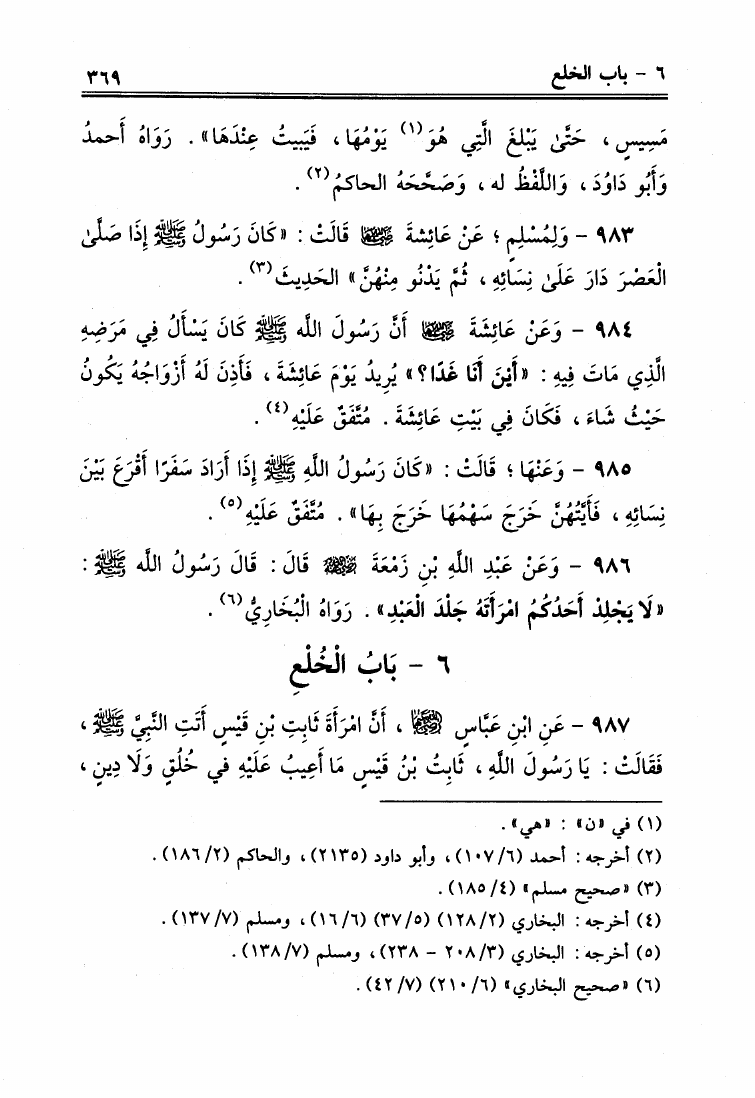 ٦ - باب الخلع
٣٦٩
مَسِيسٍ، حَتَّىٰ يَبْلغَ الَّتِي هُوَ(١) يَوْمُهَا، فَيَبيتُ عِنْدَهَا». رَوَاهُ أَحمدُ
وَأَبُو دَاوُدَ، وَاللَّفْظُ له، وَصَحَّحَهُ الحاكمُ(٢).
٩٨٣ - وَلِمُسْلِمٍ؛ عَنْ عَائِشةَ رضي الله عنها قَالَتْ: «كَانَ رَسُولُ ﷺ إِذَا صَلَّىٰ
الْعَصْرَ دَارَ عَلَىٰ نِسَائِهِ، ثُمَّ يَدْنُو مِنْهُنَّ» الحَدِيثَ(٣).
٩٨٤ - وَعَنْ عَائِشَةَ رضي الله عنها أَنَّ رَسُولَ اللَّه ﷺ كَانَ يَسْأَلُ فِي مَرَضِهِ
الَّذِي مَاتَ فِيهِ: «أَيْنَ أَنَا غَدًا؟» يُرِيدُ يَوْمَ عَائِشَةَ، فَأَذِنَ لَهُ أَزْوَاجُهُ يَكُونُ
حَيْثُ شَاءَ، فَكَانَ فِي بَيْتِ عَائِشَةَ. مُتَّفَقٌ عَلَيْهِ(٤).
٩٨٥ - وَعَنْهَا؛ قَالَتْ: «كَانَ رَسُولُ اللَّهِ ﷺ إِذَا أَرَادَ سَفَرًا أَقْرَعَ بَيْنَ
نِسَائِهِ، فَأَيَّتُهُنَّ خَرَجَ سَهْمُهَا خَرَجَ بِهَا». مُتَّفَقٌ عَلَيْهِ(٥).
٩٨٦ - وَعَنْ عَبْدِ اللَّهِ بْنِ زَمْعَةَ رضي الله عنه قَالَ: قَالَ رَسُولُ اللَّه ﷺ:
«لَا يَجْلِدْ أَحَدُكُمُ امْرَأَتَهُ جَلْدَ الْعَبْدِ». رَوَاهُ الْبُخَارِيُّ(٦).
٦ - بَابُ الْخُلْعِ
٩٨٧ - عَنِ ابْنِ عَبَّاسٍ رضي الله عنهما، أَنَّ امْرَأَةَ ثَابِتِ بْنِ قَيْسٍ أَتَتِ النَّبِيَّ ﷺ،
فَقَالَتْ: يَا رَسُولَ اللَّهِ، ثَابِتُ بْنُ قَيْسٍ مَا أَعِيبُ عَلَيْهِ فِي خُلُقٍ وَلَا دِينٍ،
(١) في «ن»: «هي».
(٢) أخرجه: أحمد (٦/١٠٧)، وأبو داود (٢١٣٥)، والحاكم (٢/١٨٦).
(٣) «صحيح مسلم» (٤/١٨٥).
(٤) أخرجه: البخاري (٢/١٢٨) (٥/٣٧) (٦/١٦)، ومسلم (٧/١٣٧).
(٥) أخرجه: البخاري (٣/٢٠٨ - ٢٣٨)، ومسلم (٧/١٣٨).
(٦) «صحيح البخاري» (٦/٢١٠) (٧/٤٢).